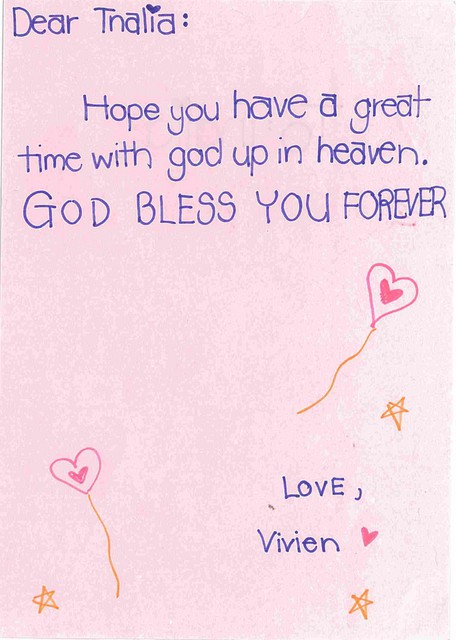 Dear Thalia:
Hope you have a great
time with god up in heaven.
GOD BLESS YOU FOREVER
LOVE,
Vivien